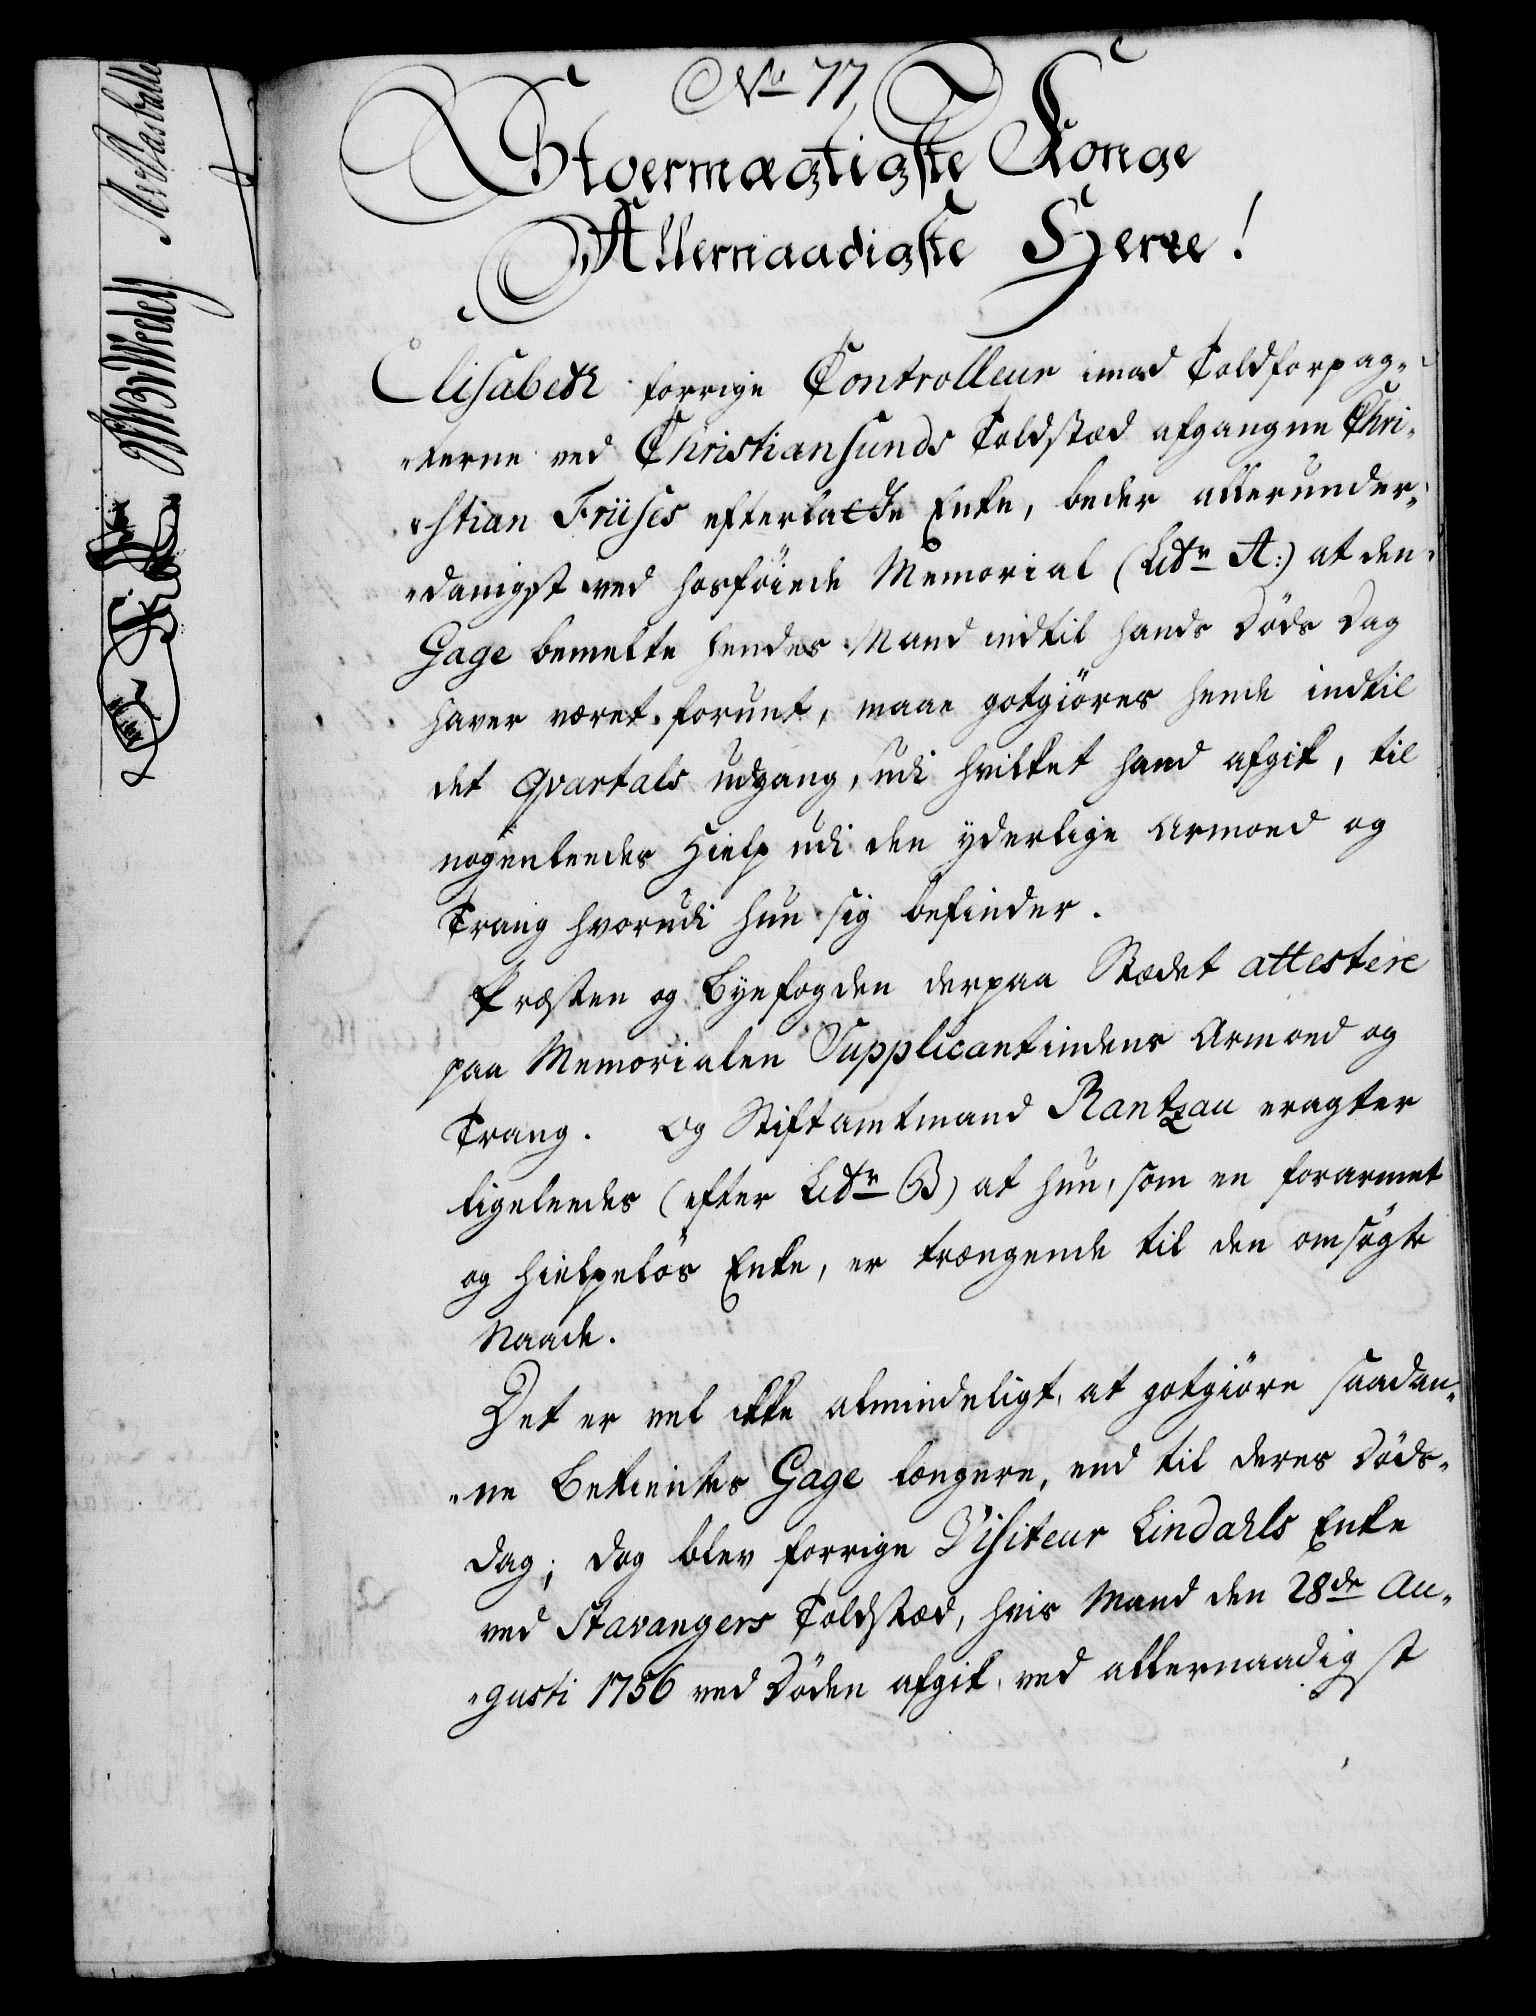 No 77
Stoermægtigste Konge
Allernaadigste Herre!
Elisabeth forrige Controlleur imod Toldforpag„
„terne ved Christiansunds Toldstæd afgangne Chri„
„stian Friises efterladte Enke, beder allerunder„
„danigst ved hosföiede Memorial (Litr A:) at den
Gage bemelte hendes Mand indtil hands Döds Dag
haver været forunt, maae gotgiöres hende indtil
det Qvartals udgang, udi hvilket hand afgik, til
nogenleedes Hielp udi den yderlige Armoed og
Trang hvorudi hun sig befinder.
Præsten og Byefogden derpaa Stædet attestere
paa Memorialen Supplicantindens Armoed og
Trang. Og Stiftamtmand Rantzau eragter
ligeleedes (efter Litr B) at hun, som en forarmet
og hielpelös Enke, er trængende til den omsögte
Naade.
Det er vel ikke almindeligt, at gotgiöre saadan„
„ne Betientes Gage længere, end til deres Döds„
Dag; dog blev forrige Visiteur Lindahls Enke
ved Stavangers Toldstæd, hvis Mand den 28de Au„
„gusti 1756 ved Döden afgik, ved allernaadigst